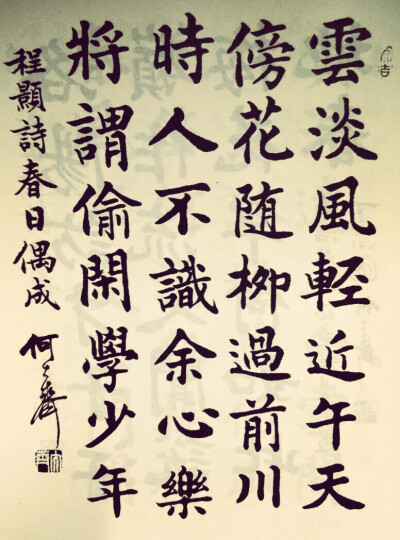 雲淡風輕近午天
傍花随柳過前川
時人不識余心樂
將謂偷閑學少年
程顥詩春日偶成